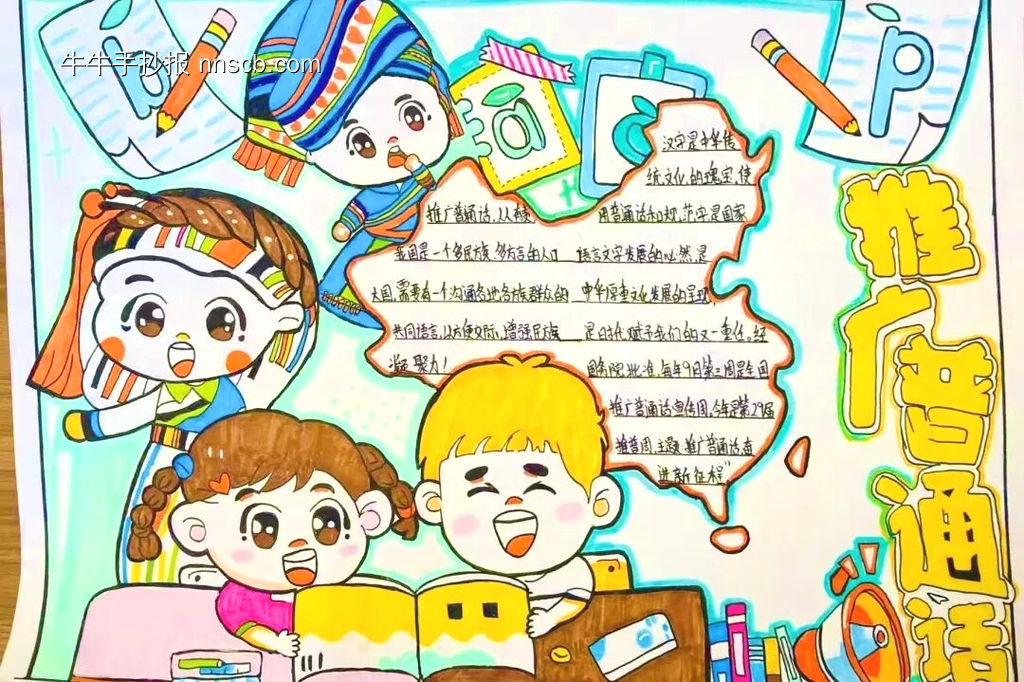 牛牛手抄报 nnscb.com
b
a
p
推广普通话
推广普通话,以
我国是一个多民族,多方言的人口
大国,需要有一个沟通各地各族群众的
共同语言,以方便交际,增强民族
凝聚力!
汉字是中华传
统文化的瑰宝,使
用普通话和规范字是国家
语言文字发展的必然,是
中华厚重文化发展的呈现,
是时代赋予我们的又一重任。经
国务院批准,每年9月第三周是全国
推广普通话宣传周,今年是第29届
推普周,主题“推广普通话,奋
进新征程”